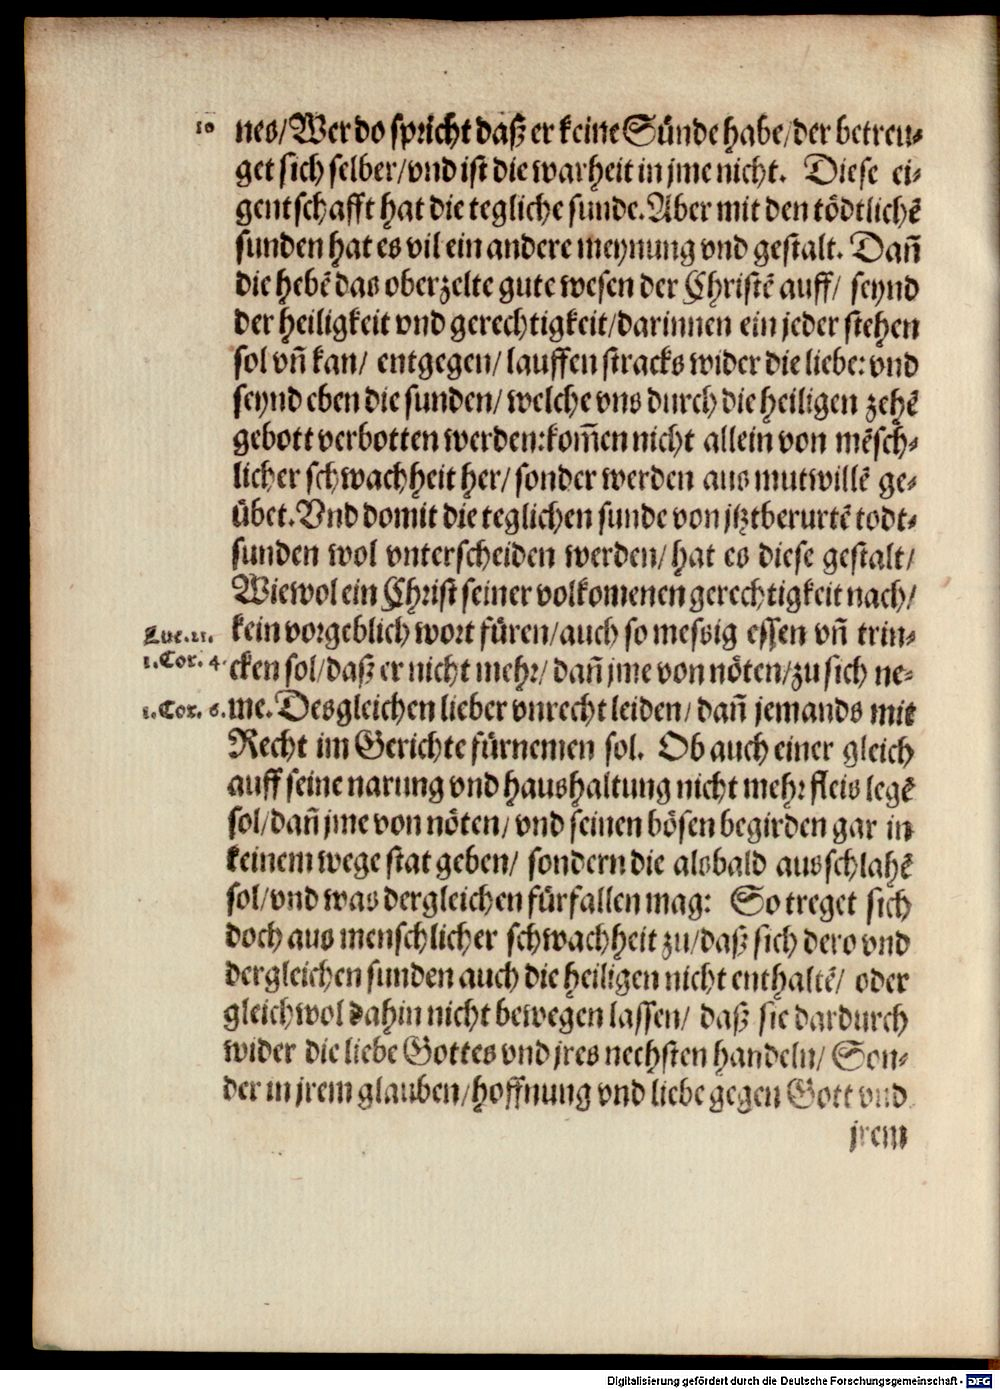 10 nes/Wer do spricht daß er keine Sünde habe/der betreu⸗
get sich selber/vnd ist die warheit in jme nicht. Diese ei⸗
gentschafft hat die tegliche sunde. Aber mit den tödtlichē
sunden hat es vil ein andere meynung vnd gestalt. Dañ
die hebē das oberzelte gute wesen der Christē auff/ seynd
der heiligkeit vnd gerechtigkeit/darinnen ein jeder stehen
sol vñ kan/ entgegen/ lauffen stracks wider die liebe: vnd
seynd eben die sunden/ welche vns durch die heiligen zehē
gebott verbotten werden: kom̃en nicht allein von mēsch⸗
licher schwachheit her/ sonder werden aus mutwillē ge⸗
übet. Vnd domit die teglichen sunde von jtztberurtē todt⸗
sunden wol vnterscheiden werden/ hat es diese gestalt/
Wiewol ein Christ seiner volkomenen gerechtigkeit nach/
Luc. 11. kein vorgeblich wort füren/auch so messig essen vñ trin⸗
1. Cor. 4. cken sol/daß er nicht mehr/ dañ jme von nöten/zu sich ne⸗
1. Cor. 6. me. Desgleichen lieber vnrecht leiden/ dañ jemands mit
Recht im Gerichte fürnemen sol. Ob auch einer gleich
auff seine narung vnd haushaltung nicht mehr fleis legē
sol/dañ jme von nöten/ vnd seinen bösen begirden gar in
keinem wege stat geben/ sondern die alsbald ausschlahē
sol/vnd was dergleichen fürfallen mag: So treget sich
doch aus menschlicher schwachheit zu/daß sich dero vnd
dergleichen sunden auch die heiligen nicht enthaltē/ oder
gleichwol dahin nicht bewegen lassen/ daß sie dardurch
wider die liebe Gottes vnd jres nechsten handeln/ Son⸗
der in jrem glauben/hoffnung vnd liebe gegen Gott vnd
jrem
Digitalisierung gefördert durch die Deutsche Forschungsgemeinschaft - DFG